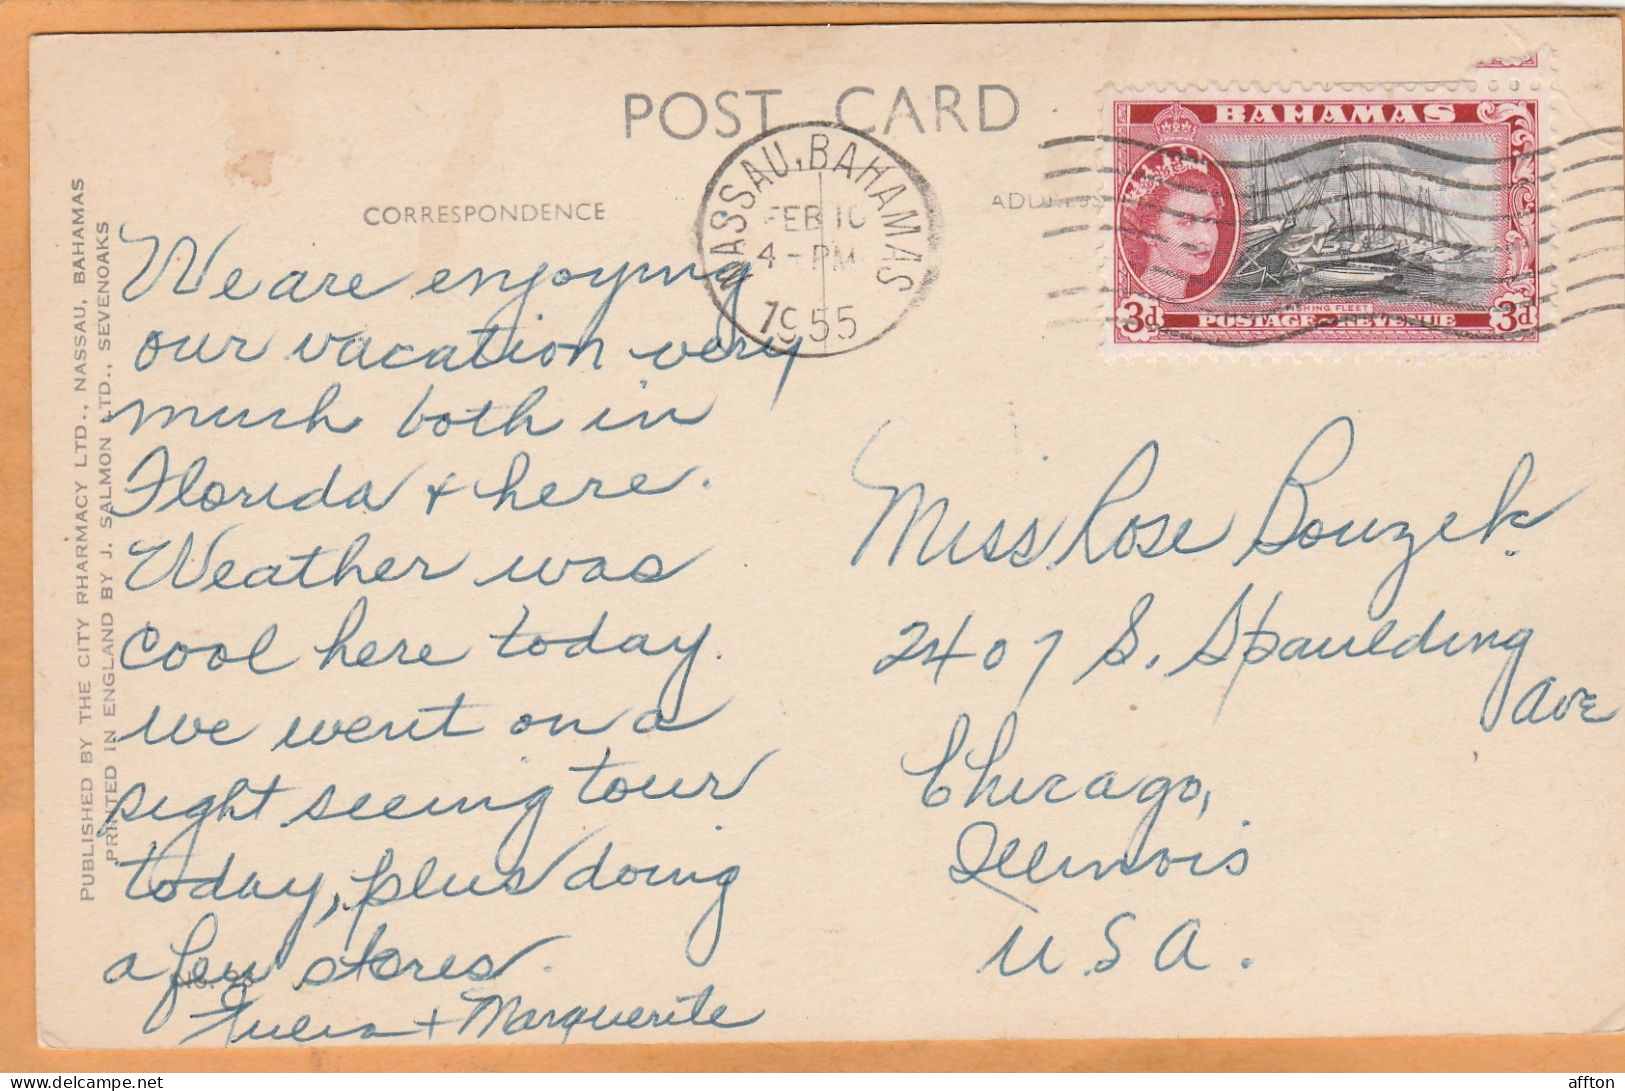 POST CARD
CORRESPONDENCE
ADDRESS
NASSAU, BAHAMAS
FEB 10
4 - PM
1955
BAHAMAS
FISHING FLEET
3d POSTAGE REVENUE 3d
PUBLISHED BY THE CITY PHARMACY LTD., NASSAU, BAHAMAS
PRINTED IN ENGLAND BY J. SALMON LTD., SEVENOAKS
We are enjoying
our vacation very
much both in
Florida + here.
Weather was
cool here today.
we went on a
sight seeing tour
today, plus doing
a few stores.
+ Marguerite
Miss Rose Bouzek
2407 S. Spaulding
Ave
Chicago,
Illinois
U.S.A.
affton